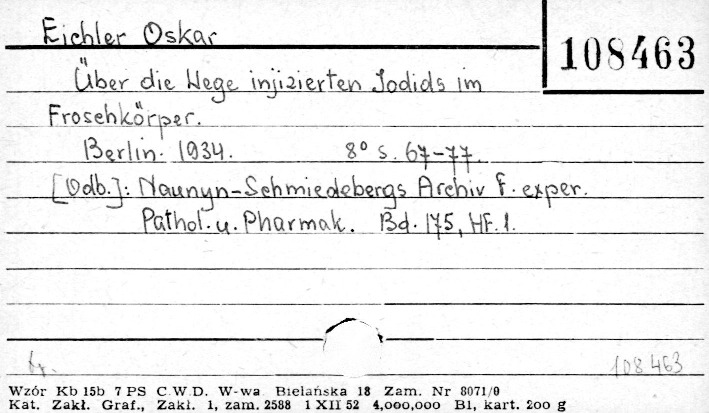 Eichler Oskar
108463
Über die Wege injizierten Jodids im
Froschkörper.
Berlin. 1934. 8° s. 67-77.
[Odb.]: Naunyn-Schmiedebergs Archiv f. exper.
Pathol. u. Pharmak. Bd. 175, Hf. 1.
108.463
Wzór Kb 15b 7 PS C.W.D. W-wa Bielańska 18 Zam. Nr 8071/0
Kat. Zakł. Graf., Zakł. 1, zam. 2588 1 XII 52 4,000,000 B1, kart. 200 g